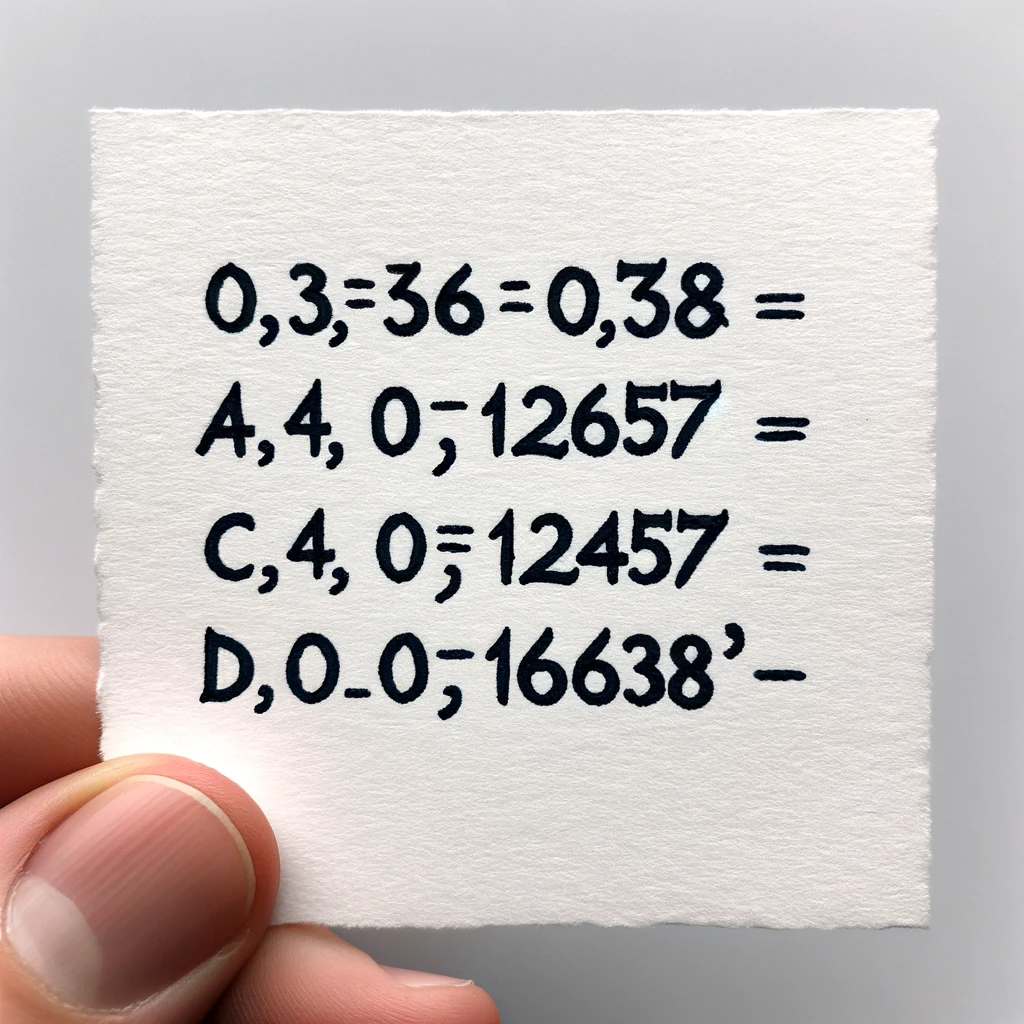 0,3,=36=0,38 =
A,4, 0-;12657 =
C,4, 0=;12457 =
D,0-0-;16638’-